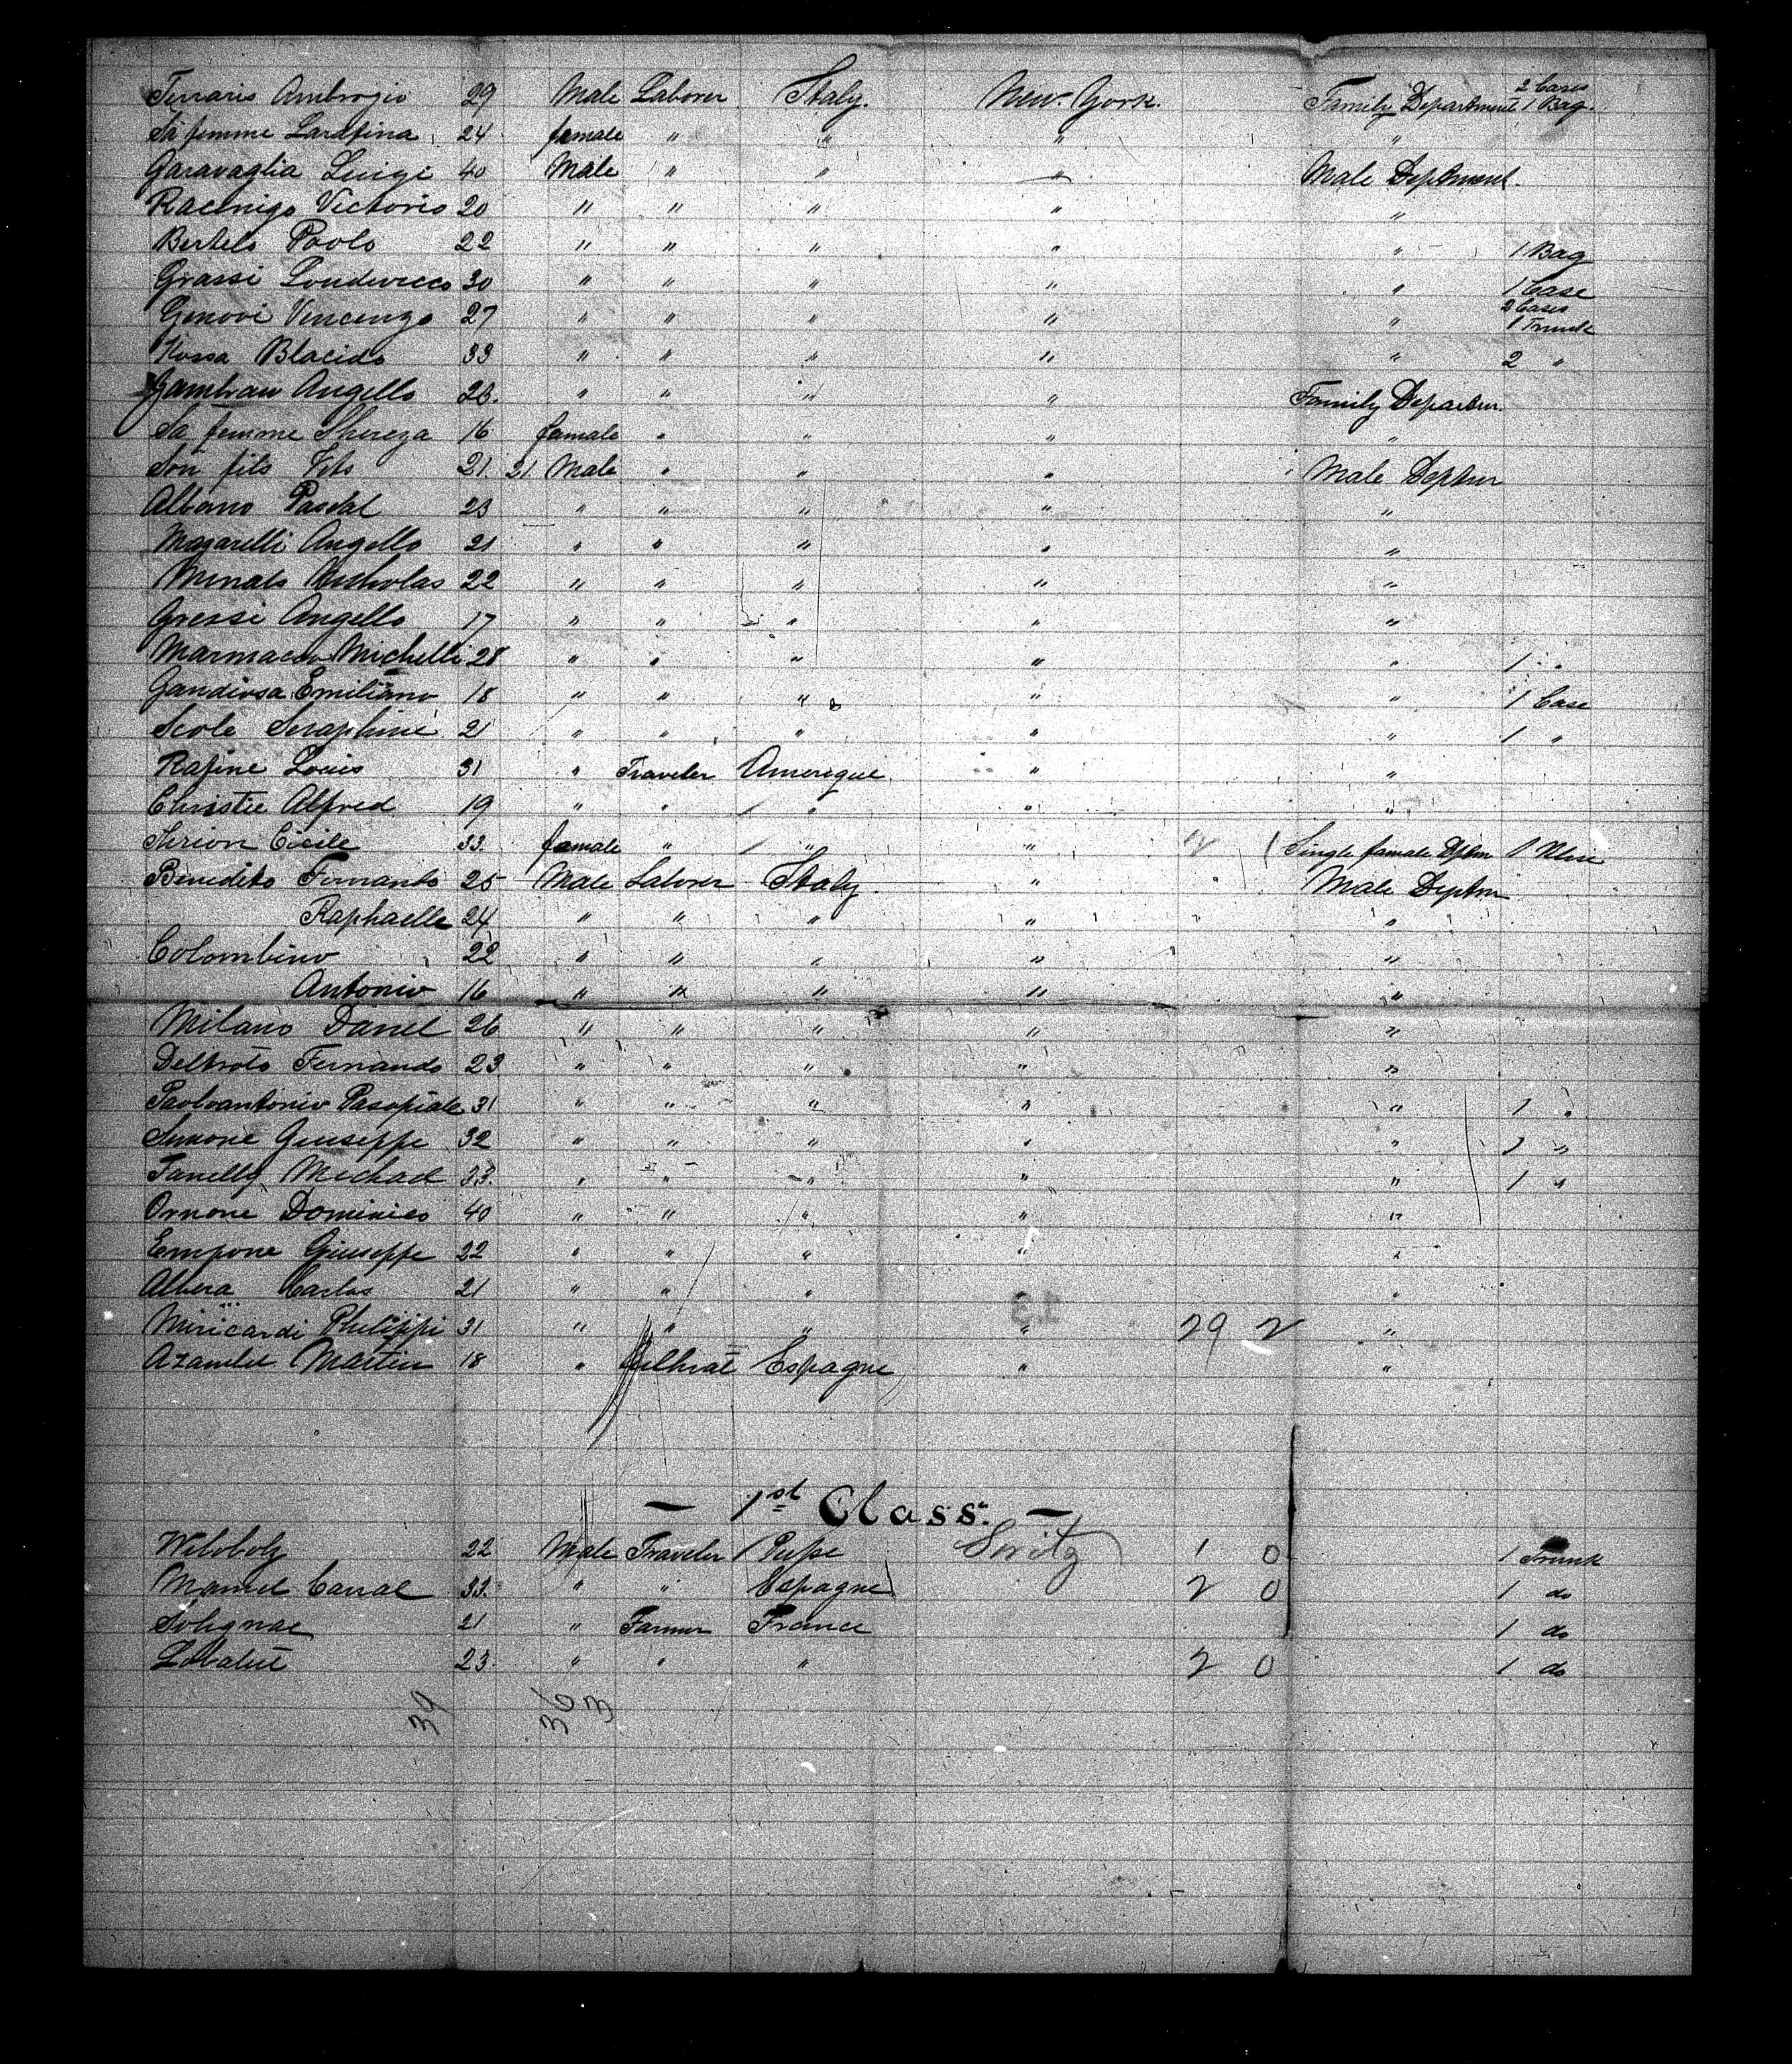 Ferraris Ambrogio 29 Male Laborer Italy. New. York. Family Department 2 Cases 1 Bag.
Sa femme 24 female " " " "
Garavaglia Luigi 40 Male " " " Male Deptment.
Victorio 20 " " " " "
Bertelo Paolo 22 " " " " " 1 Bag
Grassi 30 " " " " " 1 Case
Genovi Vencenzo 27 " " " " " 2 Cases 1 Trunk
Rossa Blacido 33 " " " " " 2 "
Angello " " " " Family Departm.
Sa femme Thereza 16 famale " " " "
Son fils Vito 21. 21. Male " " " Male Deptm
Albano Pascal 23 " " " " "
Mazarelli Angello 21 " " " " "
Nicholas 22 " " " " "
Gressi Angello 17 " " " " "
Michelli 28 " " " " " 1 "
Gandiosa Emiliano 18 " " " " " 1 Case
Scole Seraphine 21 " " " " " 1 "
Rafine Louis 31 " Traveler Amerique " "
Christie Alfred 19 " " " " "
Cicile 33. famale " " " Single famale Dptm 1
Benedito Fernando 25 Male Laborer Italy " Male Deptm
Raphaelle 24 " " " " "
Colombino 22 " " " " "
Antonio 16 " " " " "
Milano Danel 26 " " " " "
Fernando 23 " " " " "
Paoloantonio 31 " " " " " 1 "
Simone Giuseppe 32 " " " " " 1 "
Fanelly Michael 33. " " " " " 1 "
Ornone Dominico 40 " " " " "
Empone Giuseppe 22 " " " " "
Albera Carlos 21 " " " " "
Miricardi Philippi 31 " " " " 29 2 "
Martin 18 " Espagne " "
— 1st Class. —
22 Male Traveler 1 0 1 Trunk
Manuel Canal 33. " " Espagne 2 0 1 do
Solignac 21 " Farmer France 1 do
23. " " " 2 0 1 do
39 36 3